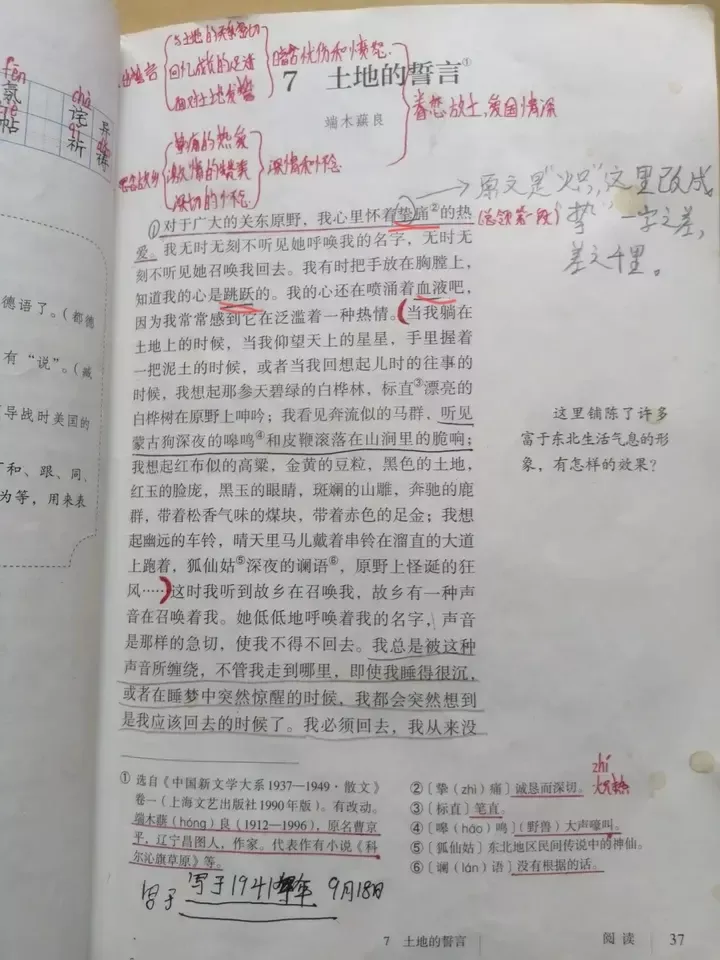 fēn
氛
chà
诧
异
帖
qí
祈
祷
德语了。（都德
有“说”。（臧
导战时美国的
和、跟、同、
为等，用来表
与土地的关系密切
回忆成长的足迹
面对土地发誓
忧伤和愤怒
眷恋故土，爱国情深
7 土地的誓言①
端木蕻良
挚痛的热爱
深切的怀念
深情和怀念
原文是“炽”，这里改成
“挚”一字之差，
差之千里。
①对于广大的关东原野，我心里怀着挚痛②的热
（总领第一段）
爱。我无时无刻不听见她呼唤我的名字，无时无
刻不听见她召唤我回去。我有时把手放在胸膛上，
知道我的心是跳跃的。我的心还在喷涌着血液吧，
因为我常常感到它在泛滥着一种热情。（当我躺在
土地上的时候，当我仰望天上的星星，手里握着
一把泥土的时候，或者当我回想起儿时的往事的
时候，我想起那参天碧绿的白桦林，标直③漂亮的
白桦树在原野上呻吟；我看见奔流似的马群，听见
蒙古狗深夜的嗥鸣④和皮鞭滚落在山涧里的脆响；
我想起红布似的高粱，金黄的豆粒，黑色的土地，
红玉的脸庞，黑玉的眼睛，斑斓的山雕，奔驰的鹿
群，带着松香气味的煤块，带着赤色的足金；我想
起幽远的车铃，晴天里马儿戴着串铃在溜直的大道
上跑着，狐仙姑⑤深夜的谰语⑥，原野上怪诞的狂
风……）这时我听到故乡在召唤我，故乡有一种声
音在召唤着我。她低低地呼唤着我的名字，声音
是那样的急切，使我不得不回去。我总是被这种
声音所缠绕，不管我走到哪里，即使我睡得很沉，
或者在睡梦中突然惊醒的时候，我都会突然想到
是我应该回去的时候了。我必须回去，我从来没
这里铺陈了许多
富于东北生活气息的形
象，有怎样的效果？
① 选自《中国新文学大系1937—1949·散文》
卷一（上海文艺出版社1990年版）。有改动。
端木蕻（hóng）良（1912—1996），原名曹京
平，辽宁昌图人，作家。代表作有小说《科
尔沁旗草原》等。
zhí
②〔挚（zhì）痛〕诚恳而深切。
③〔标直〕笔直。
④〔嗥（háo）鸣〕（野兽）大声嚎叫。
⑤〔狐仙姑〕东北地区民间传说中的神仙。
⑥〔谰（lán）语〕没有根据的话。
写于 写于1941年 9月18日
7 土地的誓言
阅读 37